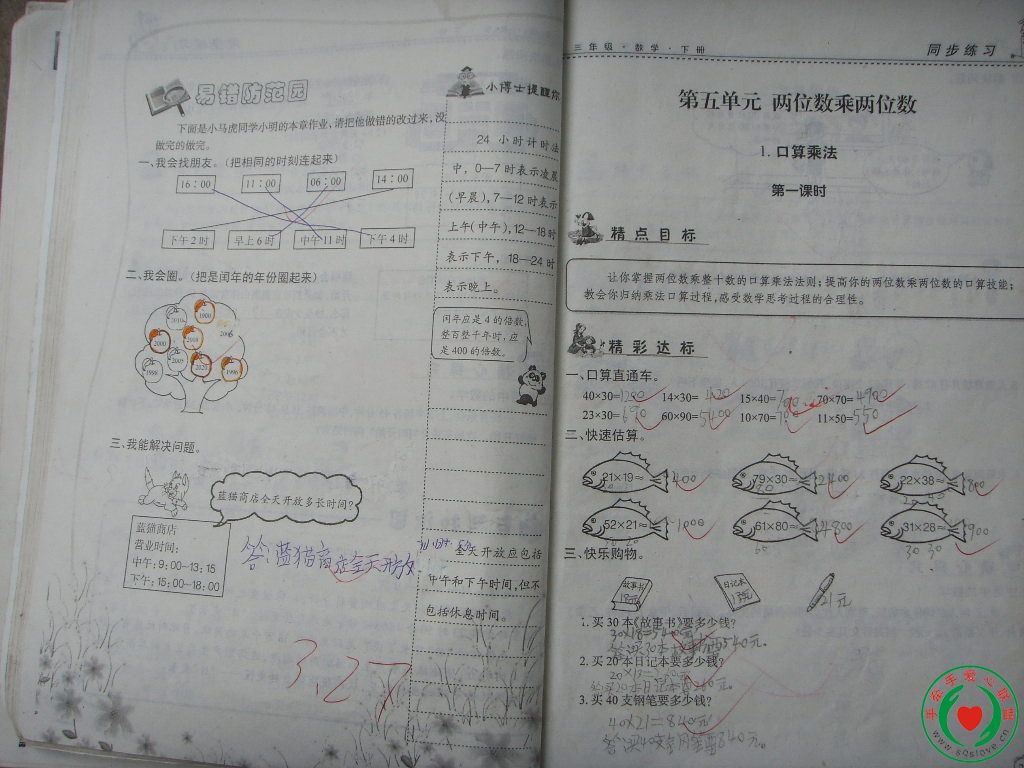 易错防范园
下面是小马虎同学小明的本章作业、请把他做错的改过来,没
做完的做完。
一、我会找朋友。(把相同的时刻连起来)
16:00 11:00 06:00 14:00
下午2时 早上6时 中午11时 下午4时
二、我会圈。(把是闰年的年份圈起来)
1900
2000
2020 1996
1998
三、我能解决问题。
蓝猫商店全天开放多长时间?
蓝猫商店
营业时间:
中午:9:00~13:15
下午:15:00~18:00
答:蓝猫商店全天开放
3.27
小博士提醒你
24 小时计时法
中,0—7时表示凌晨
(早晨),7—12时表示
上午(中午),12—18时
表示下午,18—24时
表示晚上。
闰年应是4的倍数,
整百整千年时,应
是400的倍数。
全天开放应包括
中午和下午时间,但不
包括休息时间。
三年级·数学·下册 同步练习
第五单元 两位数乘两位数
1.口算乘法
第一课时
精点目标
让你掌握两位数乘整十数的口算乘法法则;提高你的两位数乘两位数的口算技能;
教会你归纳乘法口算过程,感受数学思考过程的合理性。
精彩达标
一、口算直通车。
40×30=1200 14×30=420 15×40= 70×70=4900
23×30=690 60×90=5400 10×70=700 11×50=550
二、快速估算。
21×19≈400 79×30≈2400 22×38≈800
52×21≈1000 61×80≈4800 31×28≈900
三、快乐购物。
故事书 18元 日记本 13元 21元
1.买30本《故事书》要多少钱?
30×18=540元
2.买20本日记本要多少钱?
20×13=260元
3.买40支钢笔要多少钱?
40×21=840元
手牵手爱心联盟
www.sqslove.cn